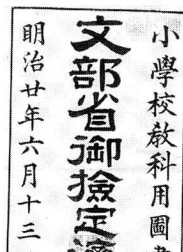 小學校敎科用圖
文部省御檢定濟
明治廿年六月十三